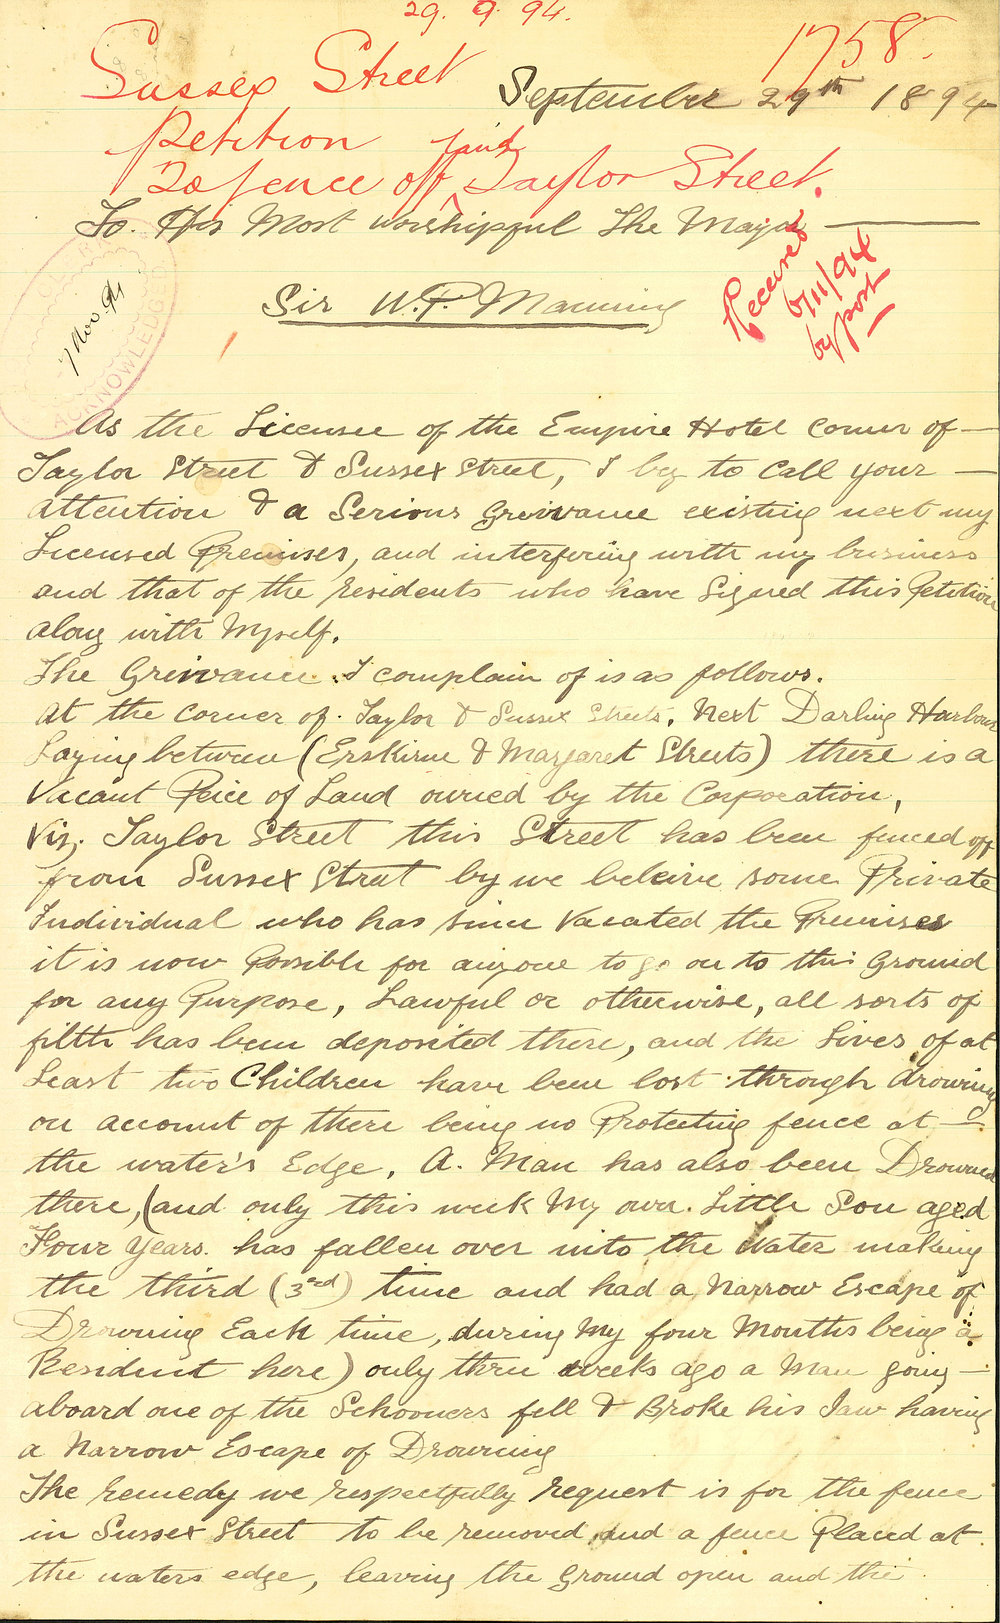 29. 9. 94.
1758.
Sussex Street
September 29th 1894
Petition
to fence off Taylor Street.
To. His Most Worshipful The Mayor
Received
6/11/94
by post
Sir W. P. Manning
7 Nov. 94
ACKNOWLEDGED
As the Licensee of the Empire Hotel corner of
Taylor Street & Sussex Street, I beg to call your
attention & a Serious Greivance existing next my
Licensed Premises, and interfering with my business
and that of the residents who have Signed this Petition
along with Myself.
The Greivance I complain of is as follows.
At the corner of. Taylor & Sussex Streets. Next Darling Harbour
Laying between (Erskine & Margaret Streets) there is a
Vacant Peice of Land owned by the Corporation,
Viz. Taylor Street this Street has been fenced off
from Sussex Street by we beleive some Private
Individual who has since Vacated the Premises
it is now Possible for anyone to go on to this Ground
for any Purpose, Lawful or otherwise, all sorts of
filth has been deposited there, and the Lives of at
Least two Children have been lost through drowning
on account of there being no Protecting fence at
the water's Edge, A. Man has also been Drowned
there, (and only this week My own Little Son aged
Four Years. has fallen over into the Water making
the third (3rd) time and had a Narrow Escape of
Drowning Each time, during My four Months being a
Resident here) only three weeks ago a Man going
aboard one of the Schooners fell & Broke his Jaw having
a Narrow Escape of Drowning
The Remedy we respectfully Request is for the fence
in Sussex Street to be removed and a fence Placed at
the waters edge, leaving the Ground open and the